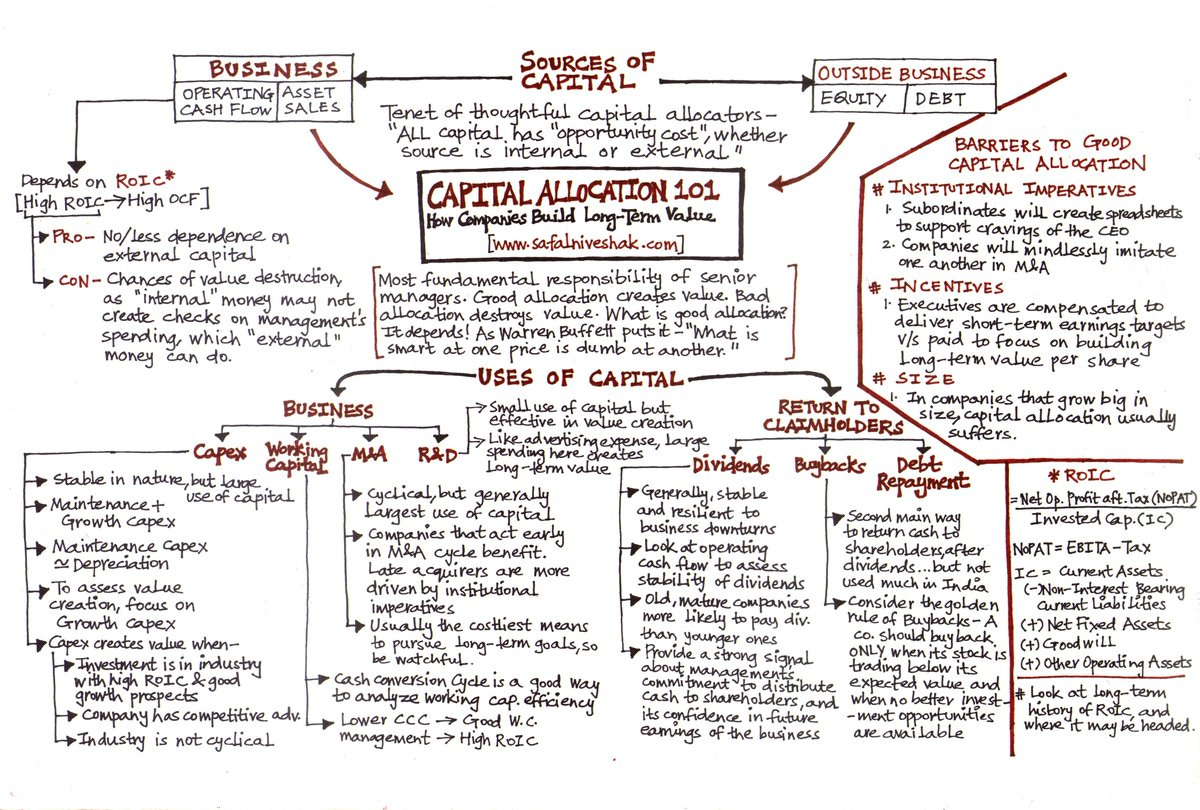 SOURCES OF
CAPITAL
BUSINESS
OPERATING
CASH FLOW
ASSET
SALES
OUTSIDE BUSINESS
EQUITY
DEBT
Tenet of thoughtful capital allocators-
"ALL capital has "opportunity cost", whether
source is internal or external"
Depends on ROIC*
[High ROIC → High OCF]
PRO- No/less dependence on
external capital
CON- Chances of value destruction,
as "internal" money may not
create checks on management's
spending, which "external"
money can do.
CAPITAL ALLOCATION 101
How Companies Build Long-Term Value
[www.safalniveshak.com]
Most fundamental responsibility of senior
managers. Good allocation creates value. Bad
allocation destroys value. What is good allocation?
It depends! As Warren Buffett puts it-"What is
smart at one price is dumb at another."
BARRIERS TO GOOD
CAPITAL ALLOCATION
# INSTITUTIONAL IMPERATIVES
1. Subordinates will create spreadsheets
to support cravings of the CEO
2. Companies will mindlessly imitate
one another in M&A
# INCENTIVES
1. Executives are compensated to
deliver short-term earnings targets
v/s paid to focus on building
Long-term value per share
# SIZE
1. In companies that grow big in
size, capital allocation usually
suffers.
USES OF CAPITAL
BUSINESS
Capex
Working
Capital
M&A
R&D
Small use of capital but
effective in value creation
Like advertising expense, large
spending here creates
Long-term value
RETURN TO
CLAIMHOLDERS
Dividends
Buybacks
Debt
Repayment
Stable in nature, but large
use of capital
Maintenance +
Growth Capex
Maintenance Capex
≃ Depreciation
To assess value
creation, focus on
Growth Capex
Capex creates value when-
Investment is in industry
with high ROIC & good
growth prospects
Company has competitive adv.
Industry is not cyclical
Cyclical, but generally
Largest use of capital
Companies that act early
in M&A cycle benefit.
Late acquirers are more
driven by institutional
imperatives
Usually the costliest means
to pursue long-term goals, so
be watchful.
Cash conversion Cycle is a good way
to analyze working cap. efficiency
Lower CCC → Good W.C.
management → High ROIC
Generally, stable
and resilient to
business downturns
Look at operating
cash flow to assess
stability of dividends
Old, mature companies
more likely to pay div.
than younger ones
Provide a strong signal
about management's
commitment to distribute
cash to shareholders, and
its confidence in future
earnings of the business
Second main way
to return cash to
shareholders, after
dividends...but not
used much in India
Consider the golden
rule of Buybacks - A
co. should buy back
ONLY when its stock is
trading below its
expected value and
when no better invest-
-ment opportunities
are available
* ROIC
= Net Op. Profit aft. Tax (NOPAT)
Invested Cap. (IC)
NOPAT = EBITA - Tax
IC = Current Assets
(-) Non-Interest Bearing
Current Liabilities
(+) Net Fixed Assets
(+) Goodwill
(+) Other Operating Assets
# Look at Long-term
history of ROIC, and
where it may be headed.